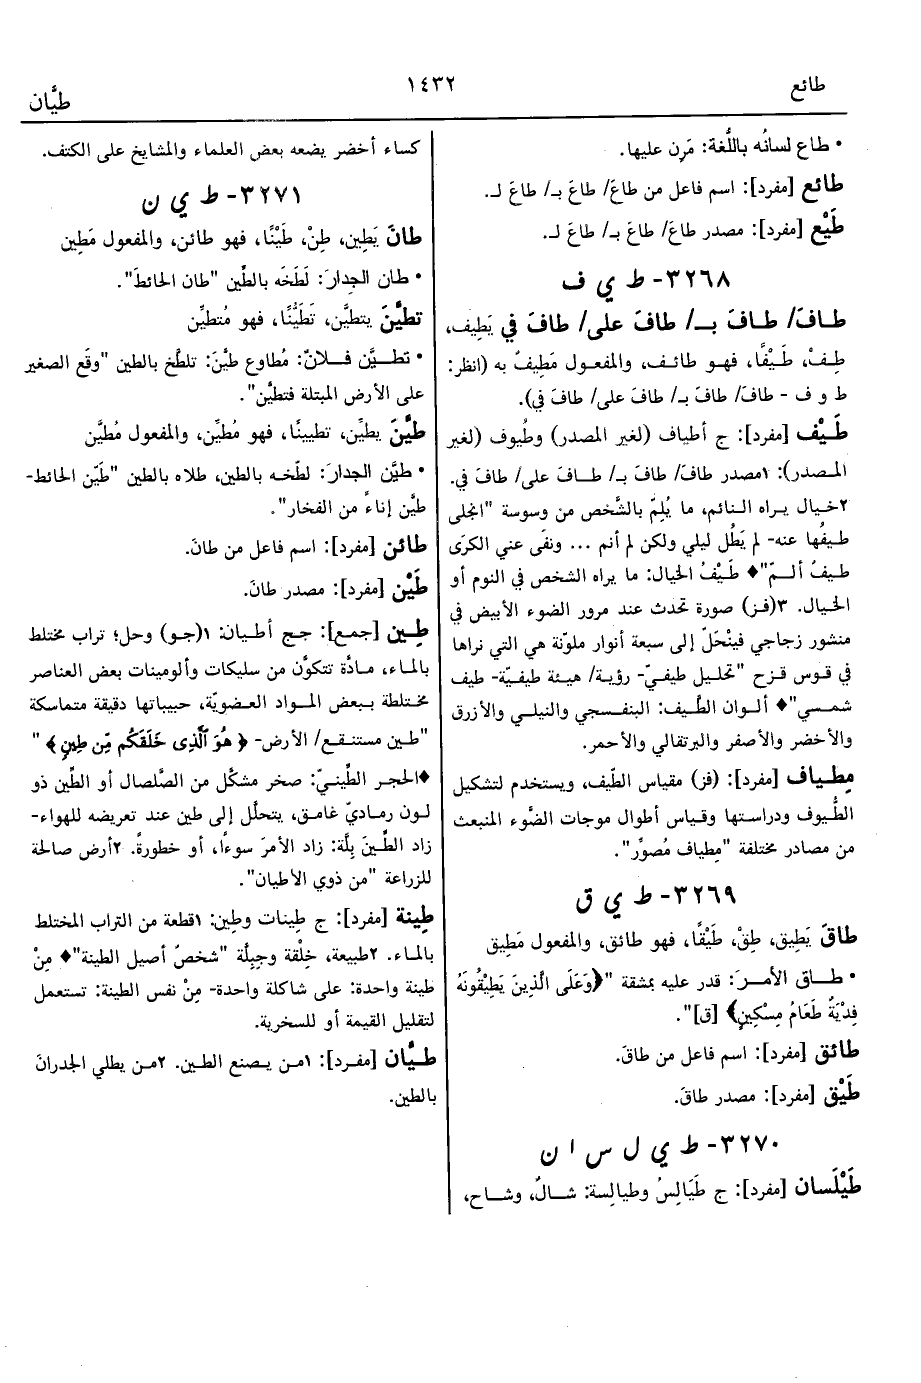 طائع
١٤٣٢
طيَّان
• طاع لسانُه باللُّغة: مَرَن عليها.
طائع [مفرد]: اسم فاعل من طاعَ/ طاعَ بـ/ طاعَ لـ.
طَيْع [مفرد]: مصدر طاعَ/ طاعَ بـ/ طاعَ لـ.
٣٢٦٨- ط ي ف
طـافَ/ طـافَ بـ/ طافَ على/ طافَ في يَطِيف،
طِـفْ، طَـيْفًا، فهـو طائـف، والمفعول مَطِيفٌ به (انظر:
ط و ف - طافَ/ طافَ بـ/ طافَ على/ طافَ في).
طَـيْف [مفرد]: ج أطياف (لغير المصدر) وطُيوف (لغير
المـصدر): ١مصدر طافَ/ طافَ بـ/ طـافَ على/ طافَ في.
٢خـيال يـراه الـنائم، ما يُلِمّ بالشَّخص من وسوسة "انجلى
طيفُها عنه- لم يَطُل ليلي ولكن لم أنم ... ونفَى عني الكرَى
طيفٌ ألـمّ"♦ طَيْفُ الخيال: ما يراه الشخص في النوم أو
الخيال. ٣(فـز) صورة تحدث عند مرور الضوء الأبيض في
منشور زجاجي فينْحَلّ إلى سبعة أنوار ملوّنة هي التي نراها
في قوس قزح "تحلـيل طيفيّ- رؤية/ هيئة طيفيّة- طيف
شمـسي"♦ ألـوان الطَّيف: البنفسجي والنيلـي والأزرق
والأخضر والأصفر والبرتقالي والأحمر.
مِطياف [مفرد]: (فز) مقياس الطّيف، ويستخدم لتشكيل
الطُّيوف ودراستها وقياس أطوال موجات الضَّوء المنبعث
من مصادر مختلفة "مِطياف مُصوِّر".
٣٢٦٩- ط ي ق
طاقَ يَطِيق، طِقْ، طَيْقًا، فهو طائق، والمفعول مَطِيق
• طـاق الأمـرَ: قدر عليه بمشقة "﴿وَعَلَى الَّذِينَ يَطِيْقُونَهُ
فِدْيَةٌ طَعَامُ مِسْكِينٍ﴾ [ق]".
طائق [مفرد]: اسم فاعل من طاقَ.
طَيْق [مفرد]: مصدر طاقَ.
٣٢٧٠- ط ي ل س ا ن
طَيْلَسان [مفرد]: ج طَيَالِسُ وطيالِسة: شـالٌ، وشـاح،
كساء أخضر يضعه بعض العلماء والمشايخ على الكتف.
٣٢٧١- ط ي ن
طانَ يَطِين، طِنْ، طَيْنًا، فهو طائن، والمفعول مَطِين
• طان الجدارَ: لَطَخَه بالطِّين "طان الحائطَ".
تطيَّنَ يتطيَّن، تَطَيُّنًا، فهو مُتطيِّن
• تطـيَّن فـلانٌ: مُطاوع طيَّنَ: تلطَّخ بالطين "وقَع الصغير
على الأرض المبتلة فتطيَّن".
طيَّنَ يطيِّن، تطيينًا، فهو مُطيِّن، والمفعول مُطيَّن
• طيَّن الجدارَ: لطّخـه بالطين، طلاه بالطين "طيّن الحائط-
طيَّن إناءً من الفخار".
طائن [مفرد]: اسم فاعل من طانَ.
طَيْن [مفرد]: مصدر طانَ.
طِـين [جمع]: جـج أطـيان: ١(جـو) وحل؛ تراب مختلط
بالماء، مـادَّة تتكوَّن من سليكات وألومينات بعض العناصر
مخـتلطة بـبعض المـواد العـضويّة، حبيباتها دقيقة متماسكة
"طـين مستنـقع/ الأرض- ﴿هُوَ ٱلَّذِى خَلَقَكُم مِّن طِينٍ﴾"
♦الحجـر الطِّينـيّ: صخر مشكَّل من الصَّلصال أو الطِّين ذو
لـون رمـاديّ غامـق، يتحلَّل إلى طين عند تعريضه للهواء-
زاد الطِّـينَ بِلَّة: زاد الأمرَ سوءًا، أو خطورةً. ٢أرض صالحة
للزراعة "من ذوي الأطيان".
طِينة [مفرد]: ج طِينات وطِين: ١قطعة من التراب المختلط
بالمـاء. ٢طبيعة، خِلْقة وجِبِلَّة "شخصٌ أصيل الطينة"♦ مِنْ
طينة واحدة: على شاكلة واحدة- مِنْ نفس الطينة: تستعمل
لتقليل القيمة أو للسخرية.
طـيَّان [مفـرد]: ١مـن يـصنع الطـين. ٢مـن يطلي الجدرانَ
بالطين.